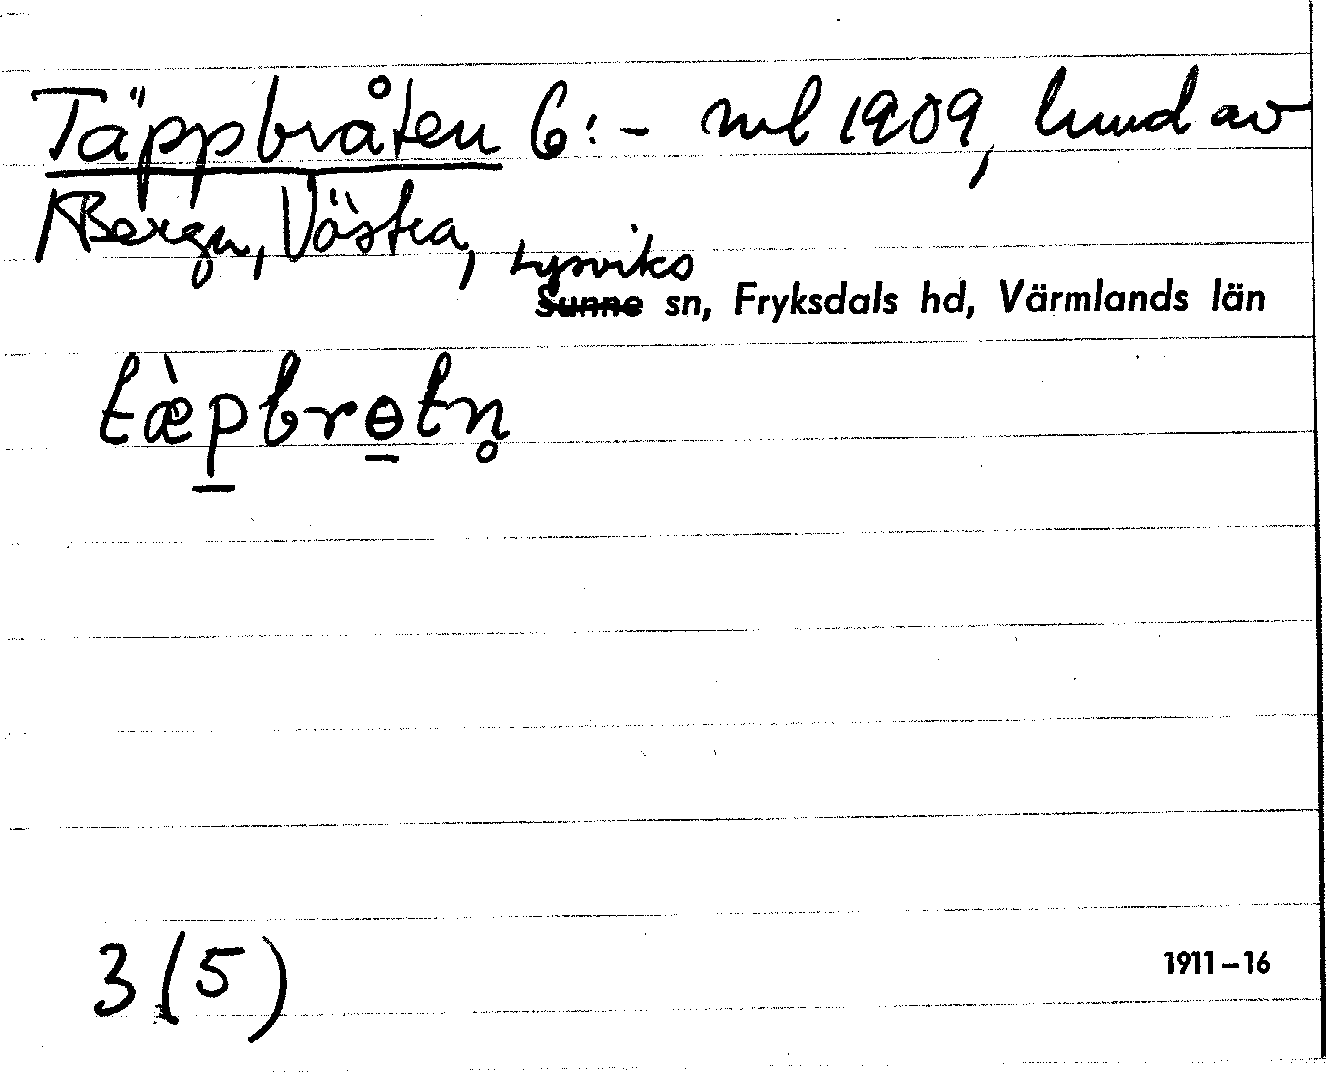 Täppbråten 6:- ml 1909, lund av
Bergn, Västra, Lysviks
Sunne sn, Fryksdals hd, Värmlands län
tæ̀p̲brɵ̲tn̥
3(5)
1911-16